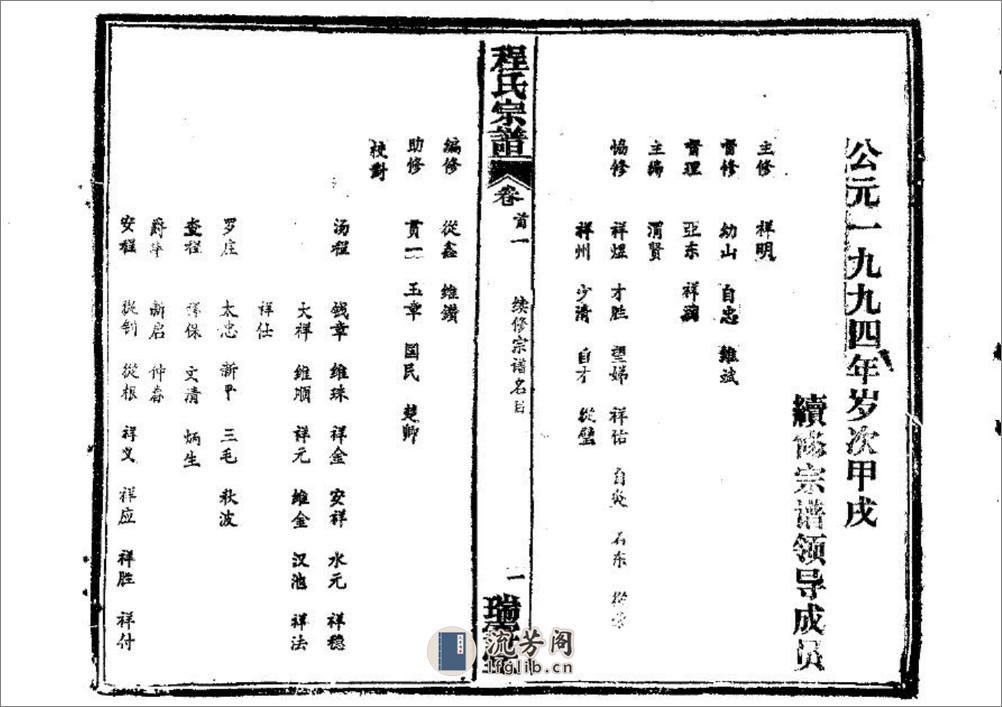 公元一九九四年岁次甲戌
續修宗谱领导成员
主修 祥明
督修 幼山 自忠 維斌
督理 亞东 祥
主编 渭贤
協修 祥煜 才胜 望娣 祥佑 自炎 石东
祥州 少清 自才 從壁
程氏宗譜
卷首一 续修宗谱名目 一
编修 從鑫 維鑽
助修 贯一 玉章 国民 楚卿
校對
汤程 钱章 维珠 祥金 安祥 水元 祥稳
大祥 维顺 祥元 维金 汉池 祥法
祥仕
罗庄 太忠 新甲 三毛 秋波
查程 祥保 文清 炳生
爵 新启 仲春
安程 從釗 從根 祥义 祥应 祥胜 祥付
流芳阁
lfglib.cn